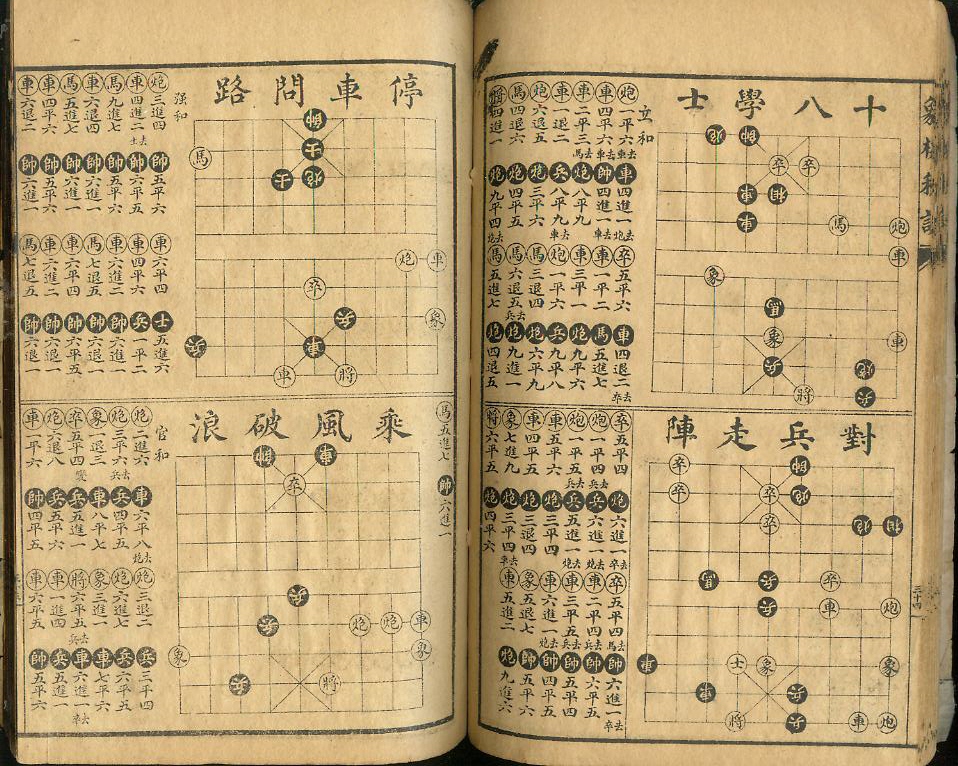 十八學士
立和
車四平六去車 帥四進一去車 車一平二 馬五進七
車二平三去馬 炮八平九 車三平一 炮九平六
車一退二 兵八平九去車 炮一平六 兵九平八
炮六退五 炮三平六 馬三退四 炮六平九
馬四退六 炮四平五 馬六退五去兵 炮九進一
將四進一 炮九平四去炮 馬五進七 炮四退五
對兵走陣
卒五平四 炮六進一去卒 卒五平四去馬 帥六進一去卒
炮一平四去兵 兵六進一 車二平四去兵 帥六平五
炮一平五去兵 兵五進一去炮 車三平五去兵 帥五平四
車四平六 炮三平四 車六進一去炮 帥四平五
車四平五 炮三退四 象五退七 帥五平六
象七進九 炮三平四去車 車五進二 炮九進六
將六平五 炮四平六
三十四
停車問路
强和
炮三進四 帥五平六 車六平四 士五進六
車四進二去士 帥六平五 車四平六 兵一平二
馬九進七 帥五平六 車六進二 帥六進一
車六退四 帥六進一 馬七退五 帥六退一
馬五進七 帥六進一 車六平四 帥六平五
車四平六 帥五平六 車六進二 帥六退一
車六退二 帥六進一 馬七退五 帥六退一
馬五進七 帥六進一
乘風破浪
官和
炮二進六 車六平八去炮 炮三退二 兵三平四
炮三平六去兵 兵四平五 炮六進七 兵六平五
象一退三 車八平七 象三進一 車七平六
卒五平四 兵五進一 將六平五去兵 車六進一去卒
炮六退八 兵五平六 車一進四 兵五進一
車一平六 帥四平五 車六平五 帥五平六